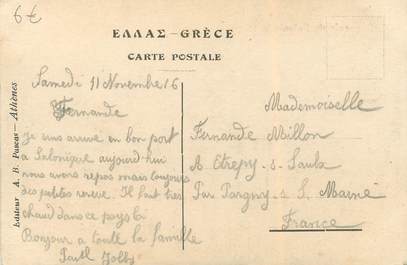 6€
ΕΛΛΑΣ – GRÈCE
CARTE POSTALE
Editeur A. B. Pascas — Athènes
Samedi 11 Novembre 16
Fernande
Je suis arrivé en bon port
a Salonique aujourd'hui
nous avons repos mais toujours
des petites
Il fait très
chaud dans ce pays ci
Bonjour a toute la famille
Paul
Mademoiselle
Fernande Millon
A Etrepy-s-Saulx
Par Pargny-s-S. Marne
France